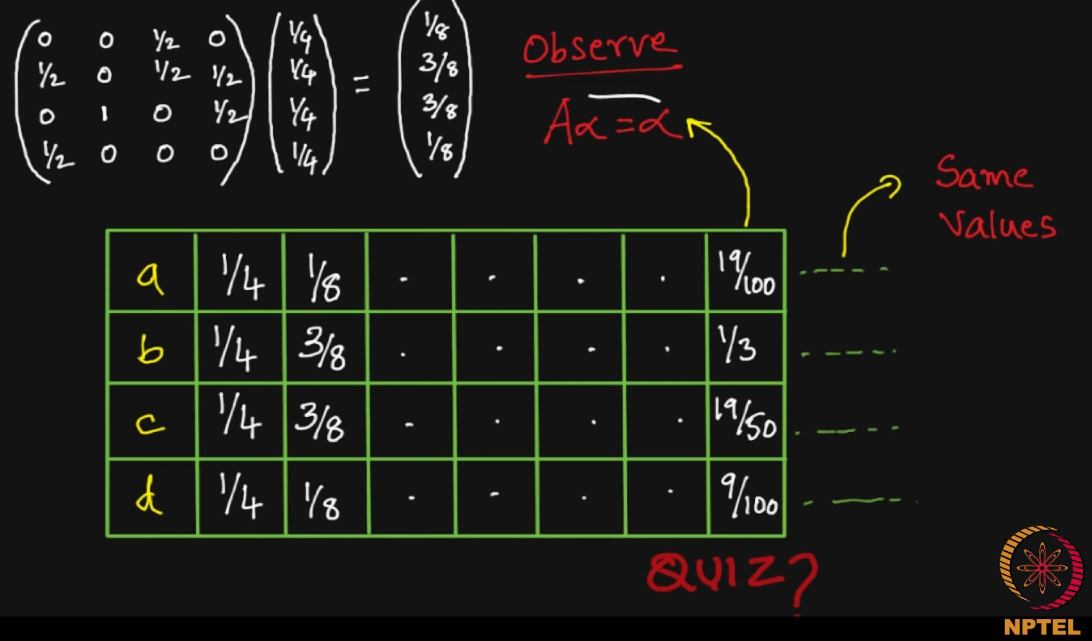 0 0 1/2 0
1/2 0 1/2 1/2
0 1 0 1/2
1/2 0 0 0
1/4
1/4
1/4
1/4
=
1/8
3/8
3/8
1/8
Observe
Aα = α
Same
Values
a 1/4 1/8 . . . . 19/100
b 1/4 3/8 . . . . 1/3
c 1/4 3/8 . . . . 19/50
d 1/4 1/8 . . . . 9/100
QUIZ?
NPTEL